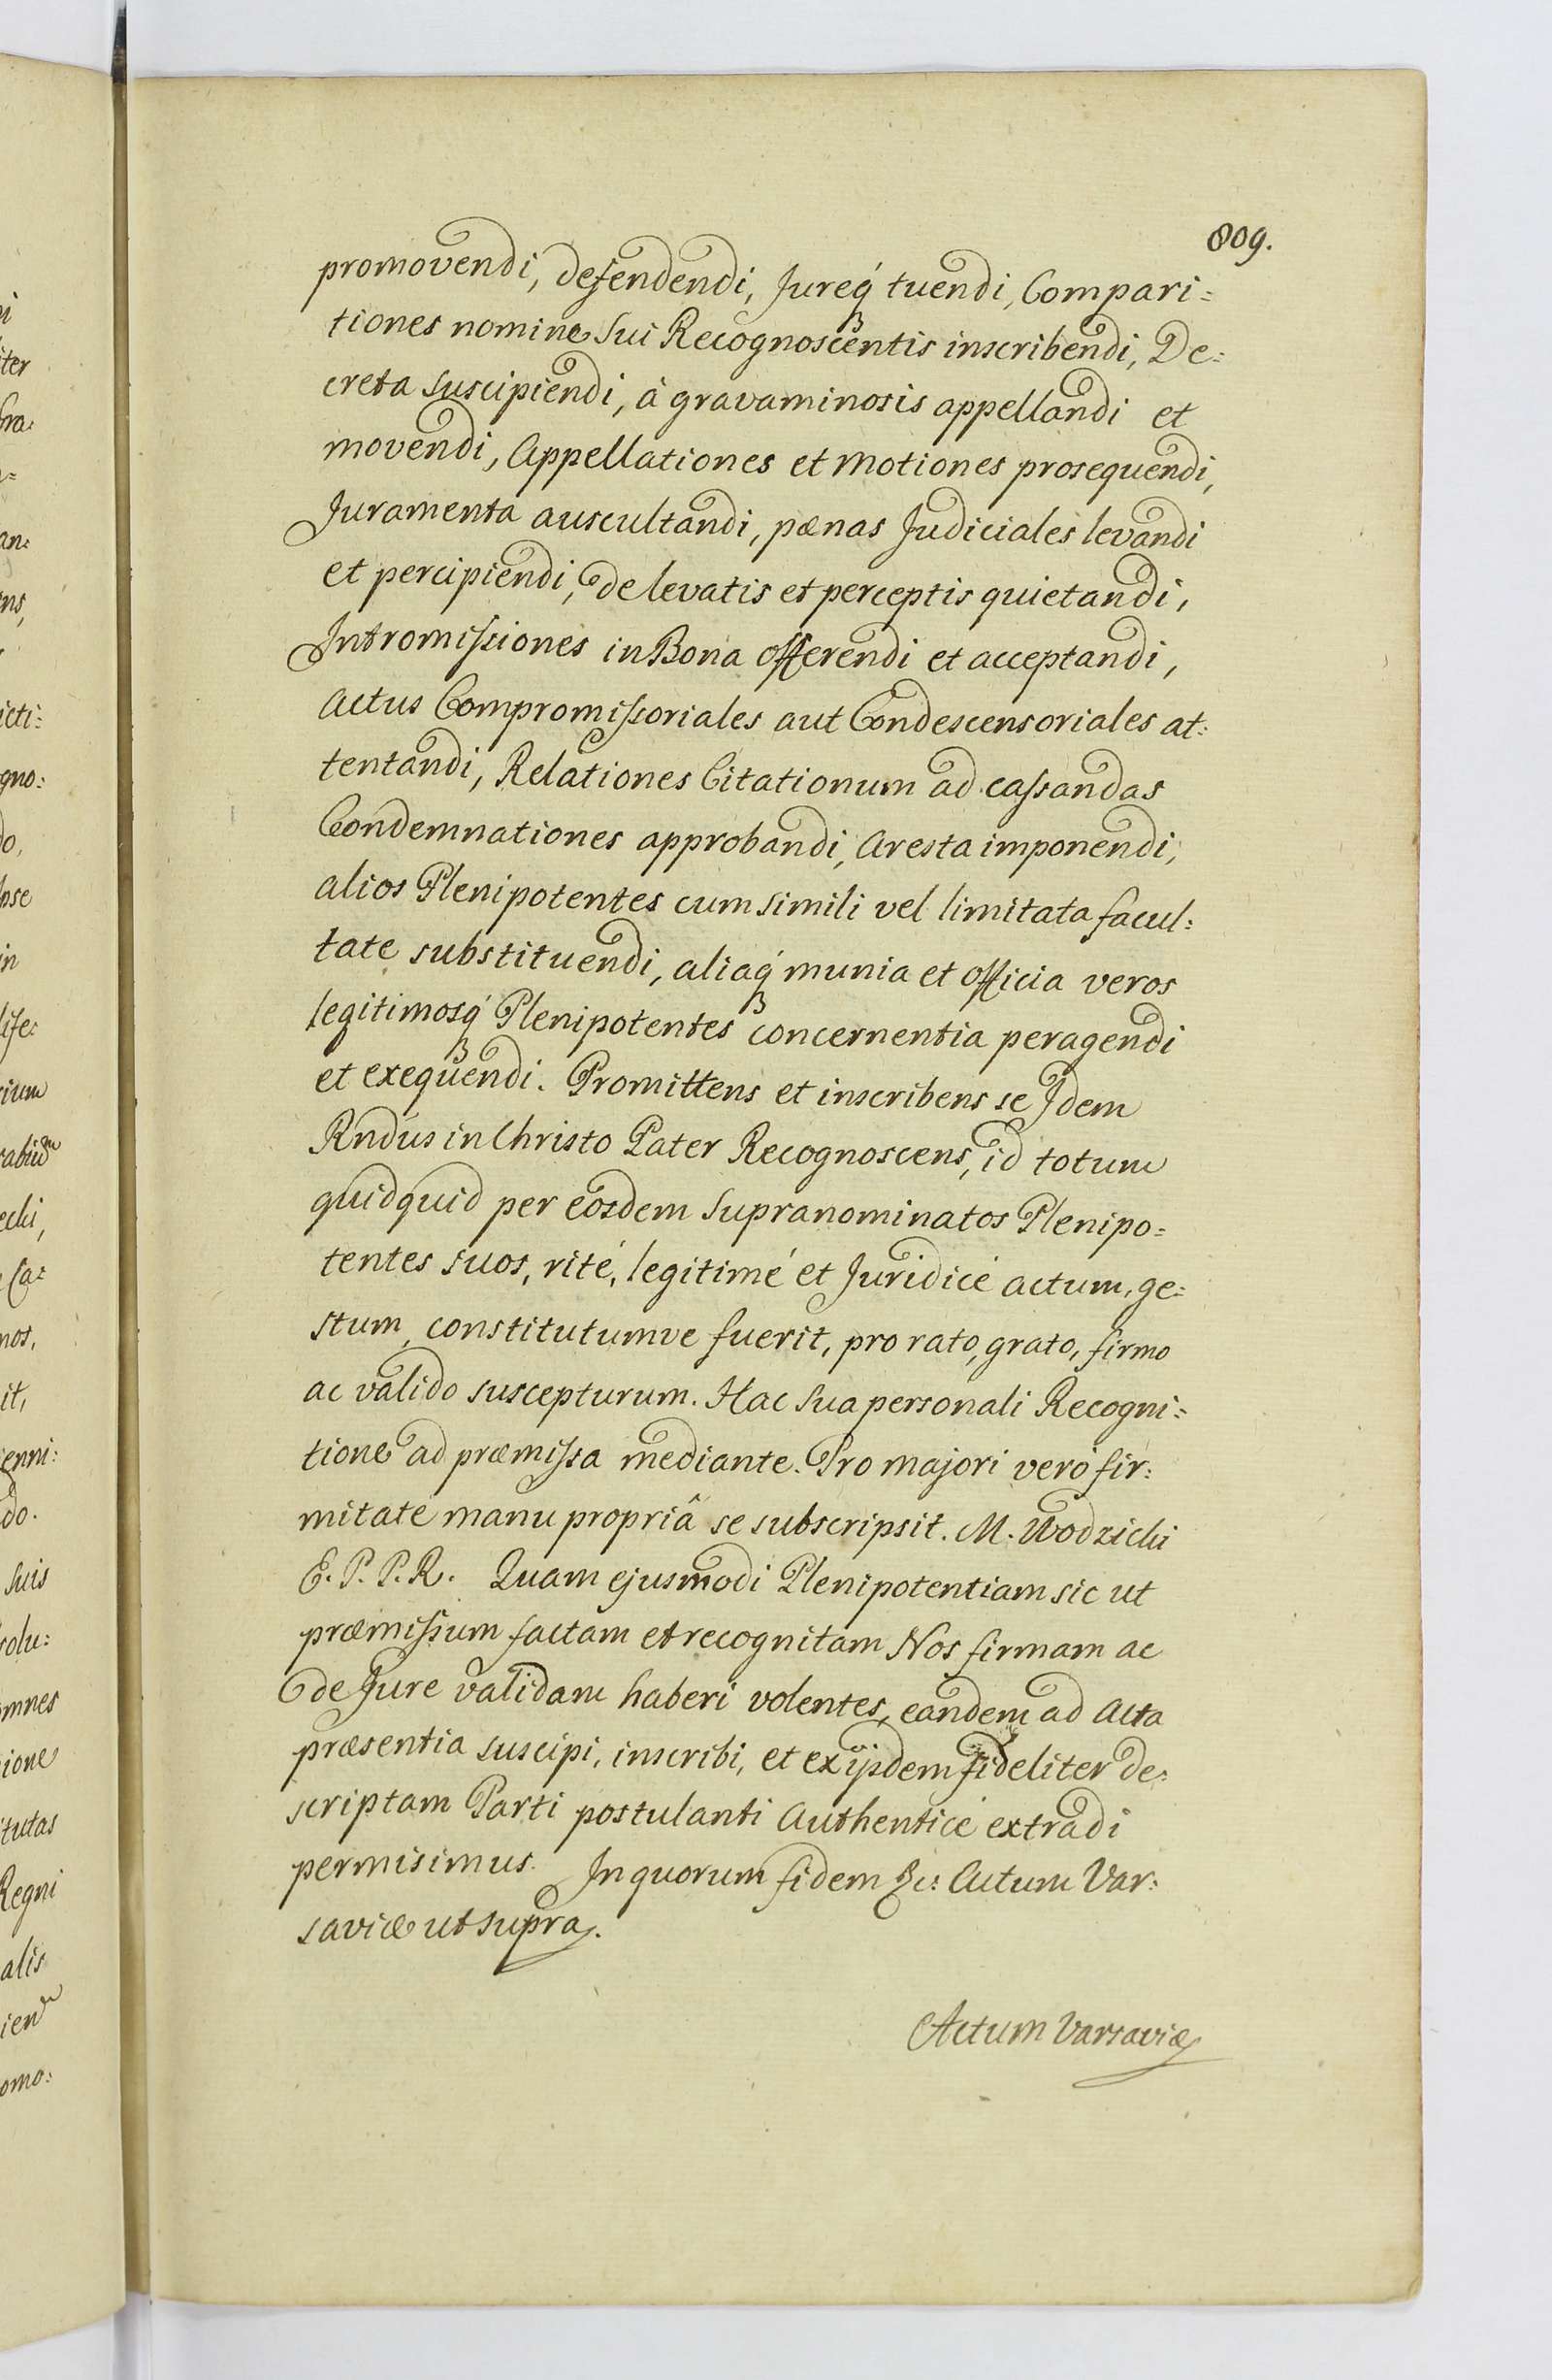 809.
promovendi, defendendi, Jureq́ tuendi, Compari=
tiones nomine Sui Recognoscentis inscribendi, De=
creta suscipiendi, à gravaminosis appellandi et
movendi, Appellationes et motiones prosequendi,
Juramenta auscultandi, pænas Judiciales levandi
et percipiendi, de levatis et perceptis quietandi,
Intromiſsiones in Bona offerendi et acceptandi,
actus Compromiſsoriales aut Condescensoriales at=
tentandi, Relationes Citationum ad caſsandas
Condemnationes approbandi, Aresta imponendi,
alios Plenipotentes cum simili vel limitata facul=
tate substituendi, aliaq́ munia et officia veros
legitimosq́ Plenipotentes concernentia peragendi
et exequendi. Promittens et inscribens se Idem
Rndús in Christo Pater Recognoscens, id totum
quidquid per eosdem Supranominatos Plenipo=
tentes suos, rité, legitimé et Juridicé actum, ge=
stum, constitutumve fuerit, pro rato, grato, firmo
ac valido suscepturum. Hac Sua personali Recogni=
tione ad præmiſsa mediante. Pro majori veró fir=
mitate manu propriâ se subscripsit. M. Wodzicki
E. P. P. R. Quam ejusmodi Plenipotentiam sic ut
præmiſsum factam et recognitam Nos firmam ac
de Jure validam haberi volentes, eandem ad Acta
præsentia suscipi, inscribi, et ex ijsdem fideliter de=
scriptam Parti postulanti Authenticé extradi
permisimus. In quorum fidem &c: Actum Var=
saviæ ut supra.
Actum Varsaviæ